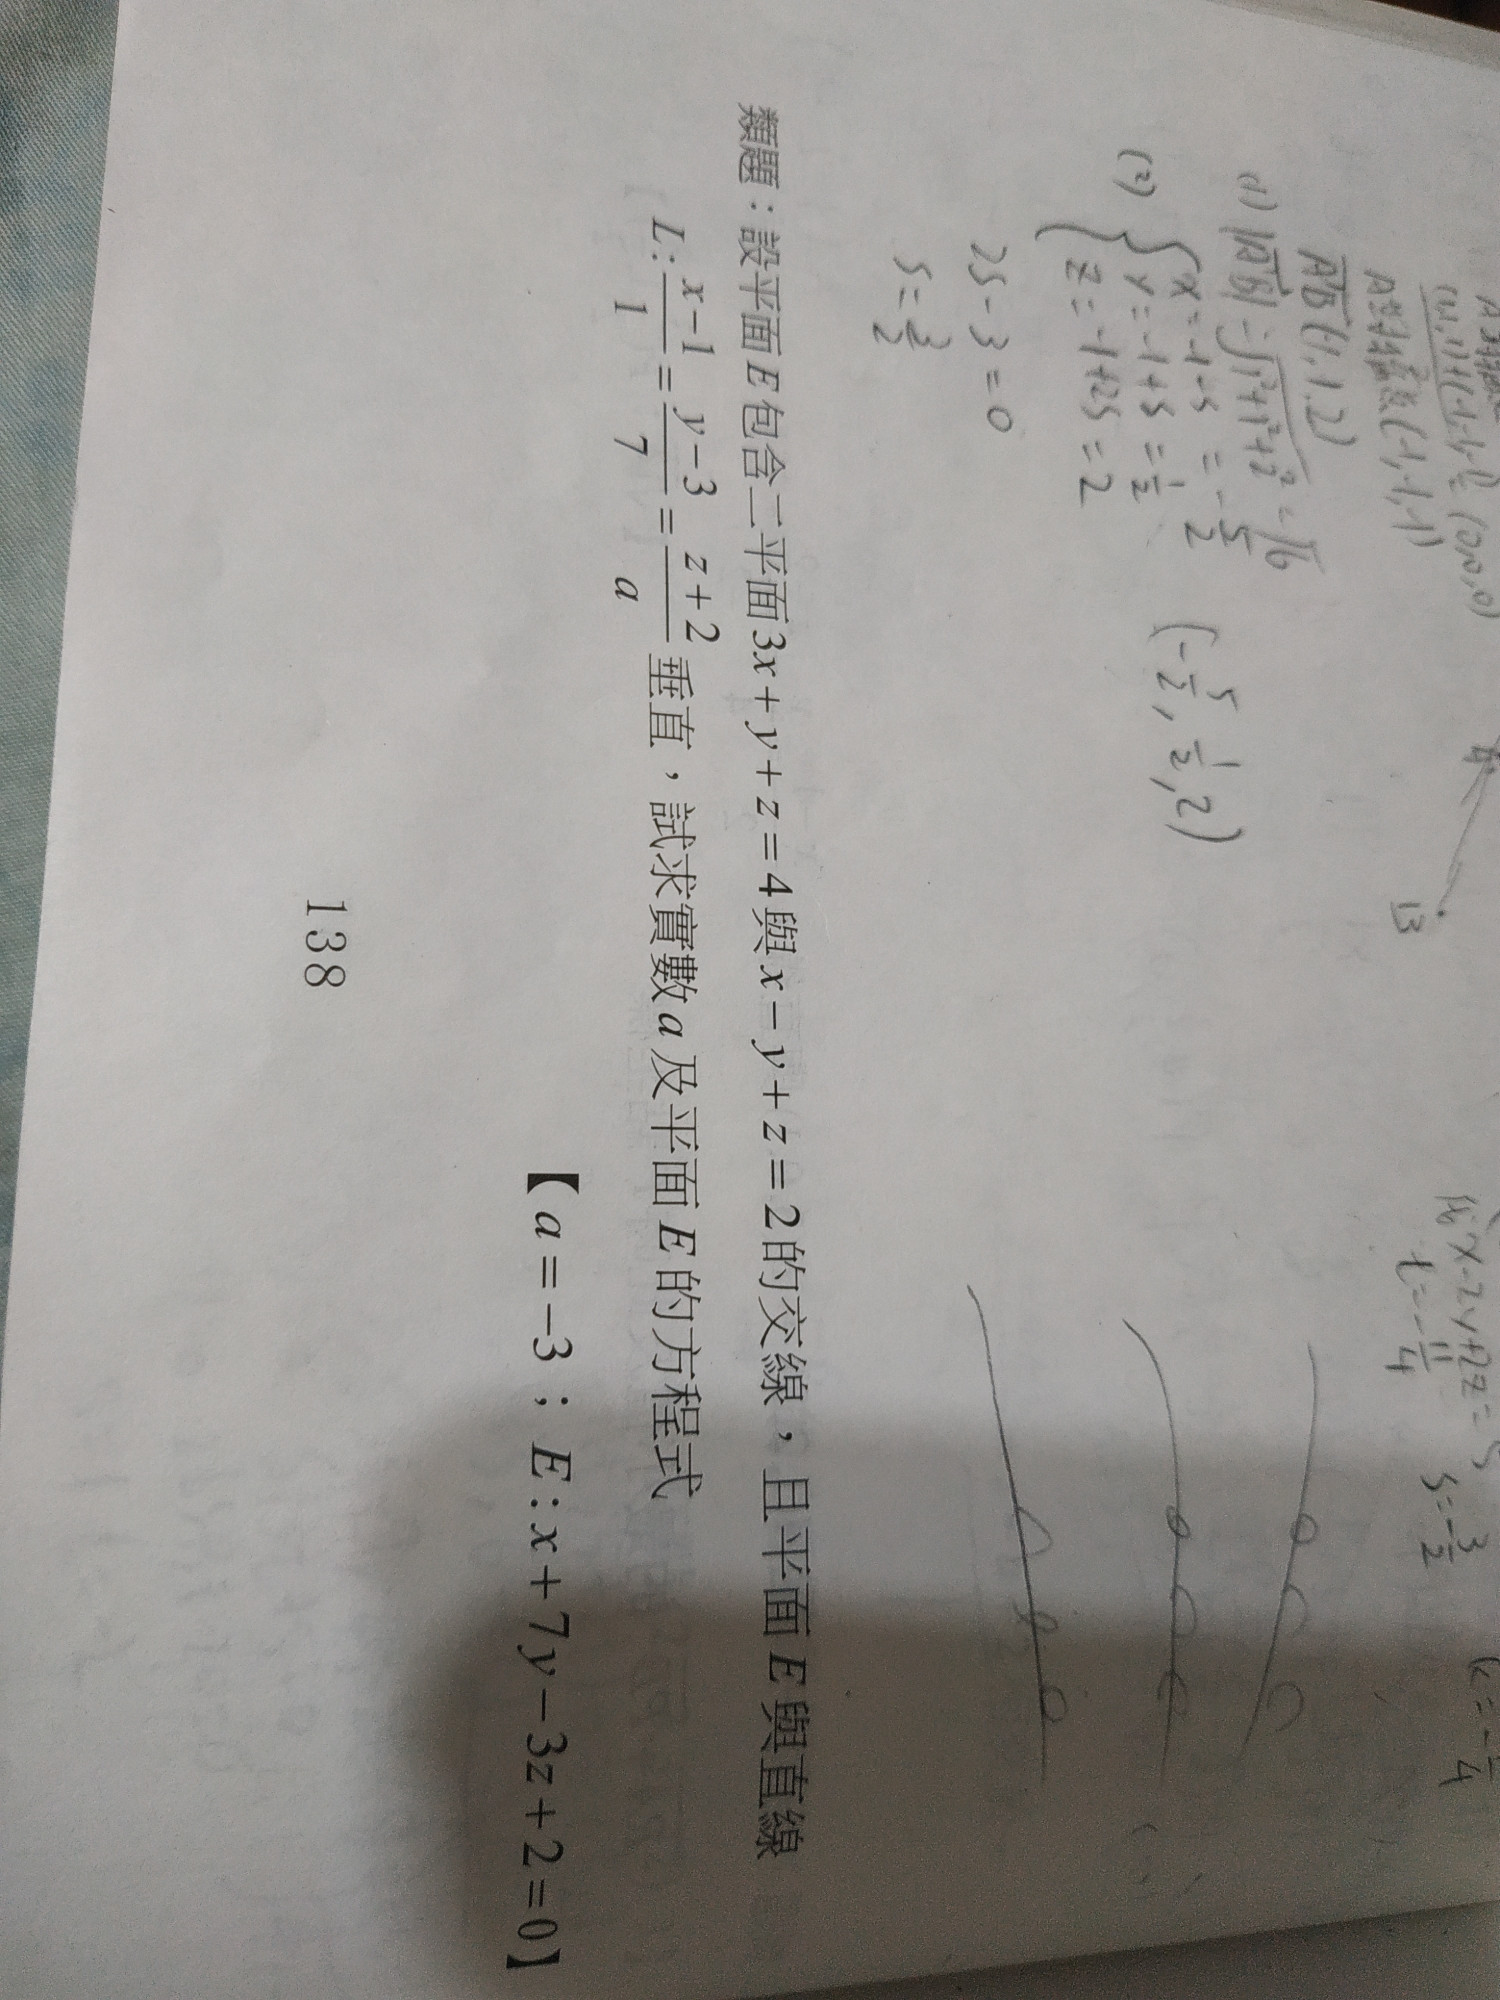 A'B(-1,1,2)
(1) |A'B|=√1²+1²+2²=√6
(2) { x=-1-s = -5/2
y=-1+s = 1/2 (-5/2, 1/2, 2)
z=-1+2s = 2
2s-3=0
s=3/2
B
x-2y+2z=
t=-11/4
類題：設平面E包含二平面3x+y+z=4與x-y+z=2的交線，且平面E與直線
L: x-1/1 = y-3/7 = z+2/a 垂直，試求實數a及平面E的方程式
【a=-3；E:x+7y-3z+2=0】
138